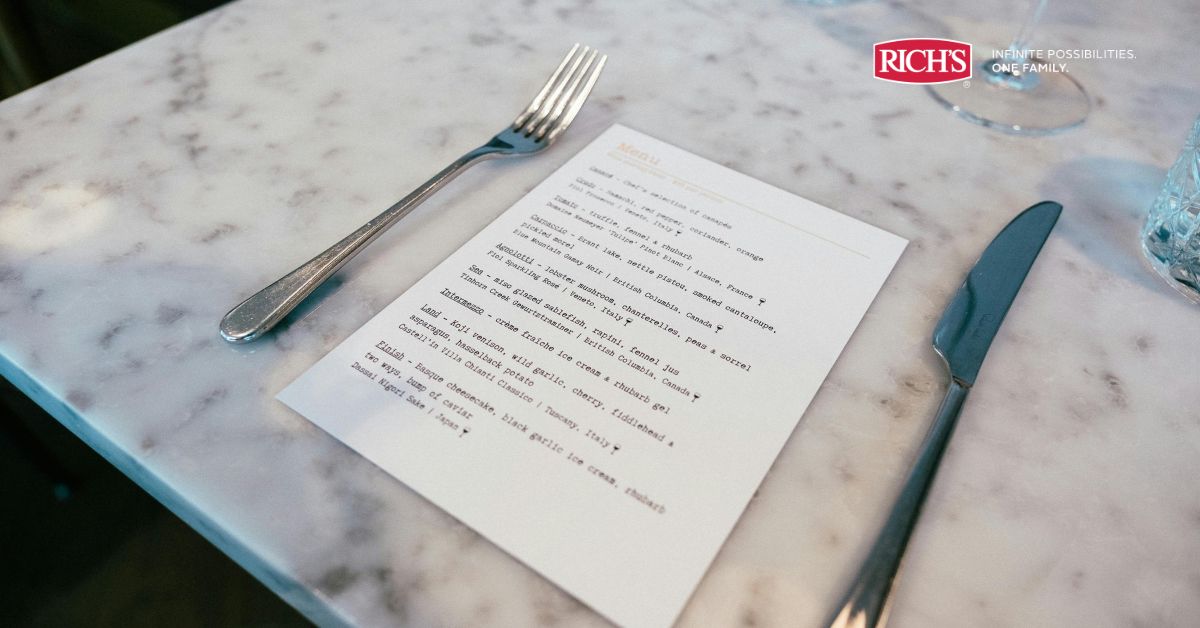 RICH'S
®
INFINITE POSSIBILITIES.
ONE FAMILY.
Menu
Canapé - Chef's selection of canapés
Crudo - hamachi, red pepper, coriander, orange
Fiol Prosecco | Veneto, Italy
Tomato - truffle, fennel & rhubarb
Domaine Neumeyer 'Tulipe' Pinot Blanc | Alsace, France
Carpaccio - Brant lake, nettle pistou, smoked cantaloupe,
pickled morel
Blue Mountain Gamay Noir | British Columbia, Canada
Agnolotti - lobster mushroom, chanterelles, peas & sorrel
Fiol Sparkling Rosé | Veneto, Italy
Sea - miso glazed sablefish, rapini, fennel jus
Tinhorn Creek Gewurtztraminer | British Columbia, Canada
Intermezzo - crème fraîche ice cream & rhubarb gel
Land - Koji venison, wild garlic, cherry, fiddlehead &
asparagus, hasselback potato
Castell'in Villa Chianti Classico | Tuscany, Italy
Finish - Basque cheesecake, black garlic ice cream, rhubarb
two ways, bump of caviar
Dassai Nigori Sake | Japan